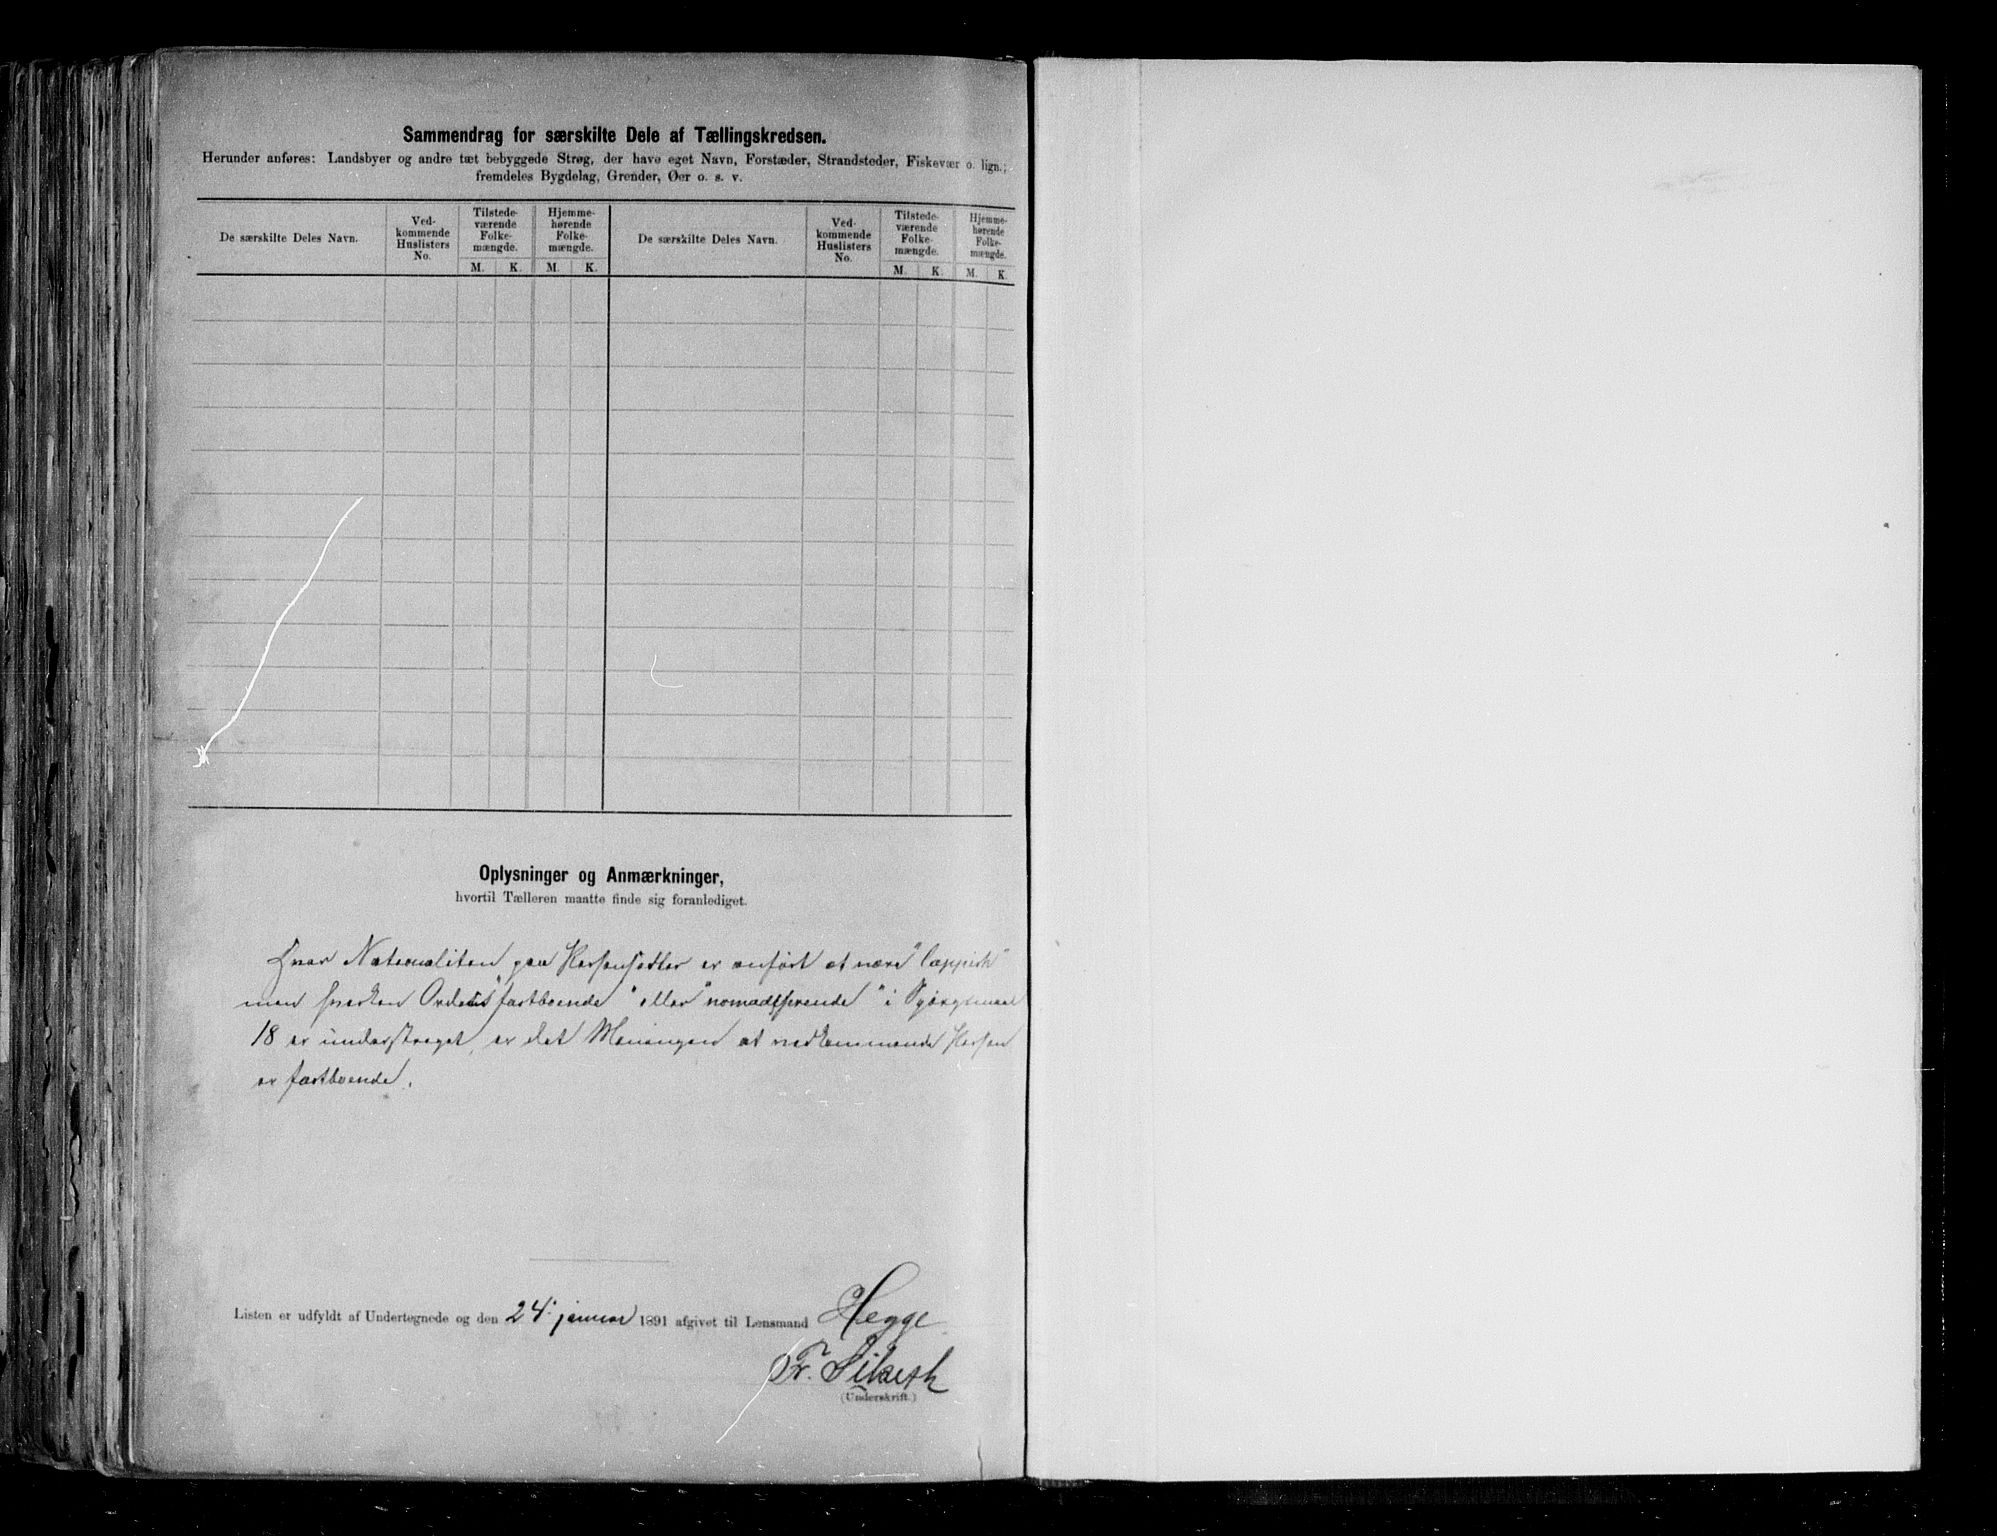 Sammendrag for særskilte Dele af Tællingskredsen.
Herunder anføres: Landsbyer og andre tæt bebyggede Strøg, der have eget Navn, Forstæder, Strandsteder, Fiskevær o. lign.;
fremdeles Bygdelag, Grender, Øer o. s. v.
De særskilte Deles Navn.
Ved-
kommende
Huslisters
No.
Tilstede-
værende
Folke-
mængde.
M. K.
Hjemme-
hørende
Folke-
mængde.
M. K.
De særskilte Deles Navn.
Ved-
kommende
Huslisters
No.
Tilstede-
værende
Folke-
mængde.
M. K.
Hjemme-
hørende
Folke-
mængde.
M. K.
Oplysninger og Anmærkninger,
hvortil Tælleren maatte finde sig foranlediget.
Hvor Nationaliteten paa Personsedler er anført at være "lappisk"
men hverken Ordene "fastboende" eller "nomadiserende" i Spørgsmaal
18 er understreget, er det Meningen at vedkommende Person
er fastboende.
Listen er udfyldt af Undertegnede og den 24. januar 1891 afgivet til Lensmand Hegge
Fr.
(Underskrift.)